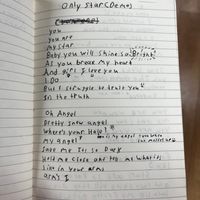 Only Star (Demo)
you
you are
my star
Baby you will shine so Bright!
As you break my heart
And I love you
I DO
But I struggle to trust you
Its the truth
Oh Angel
Pretty snow angel
Where's your Halo?
my angel
Save me Its so Dark
Hold me close and tell me what is
Like in your arms
arms I